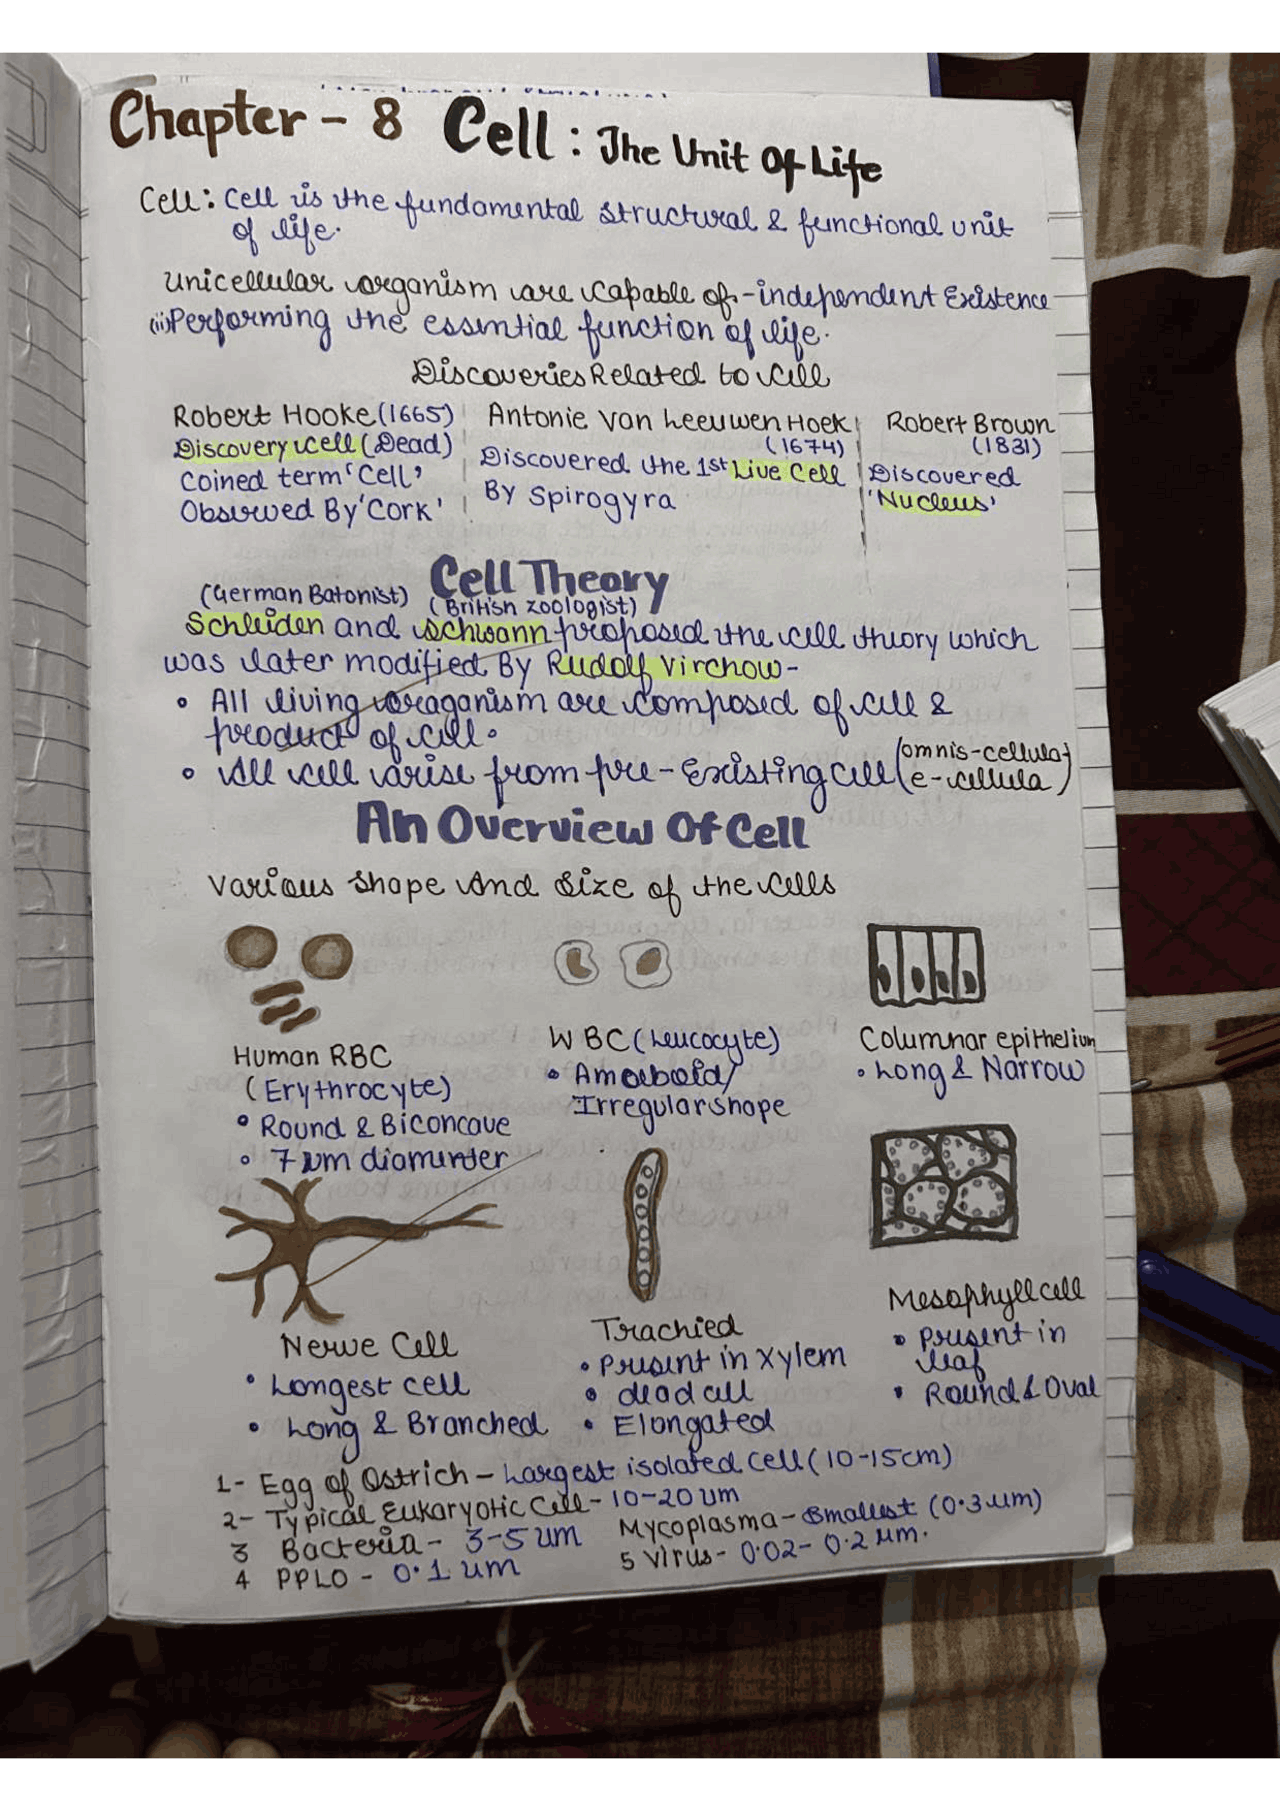 Chapter - 8 Cell : The Unit Of Life
Cell: Cell is the fundamental structural & functional unit
of life.
Unicellular organism are capable of - independent Existence
(ii) Performing the essential function of life.
Discoveries Related to cell
Robert Hooke (1665)
Discovery cell (Dead)
Coined term 'Cell'
Observed By 'Cork'
Antonie Van Leeuwen Hoek
(1674)
Discovered the 1st Live Cell
By Spirogyra
Robert Brown
(1831)
Discovered
'Nucleus'
Cell Theory
(German Batonist) (British zoologist)
Schleiden and Schwann proposed the cell theory which
was later modified By Rudolf Virchow-
• All living oraganism are composed of cell &
product of cell.
• All cell arise from pre-Existing cell (omnis-cellula-
e-cellula)
An Overview Of Cell
Various shape And Size of the cells
Human RBC
(Erythrocyte)
• Round & Biconcave
• 7 um diamenter
WBC (Leucocyte)
• Amoeboid/
Irregular shape
Columnar epithelium
• Long & Narrow
Nerve Cell
• Longest cell
• Long & Branched
Trachied
• Present in xylem
• dead cell
• Elongated
Mesophyll cell
• Present in
leaf
• Round & Oval
1- Egg of Ostrich - Largest isolated cell (10-15cm)
2- Typical Eukaryotic Cell - 10-20 um
3 Bacteria - 3-5 um
Mycoplasma - Smallest (0.3 um)
4 PPLO - 0.1 um
5 Virus - 0.02- 0.2 µm.